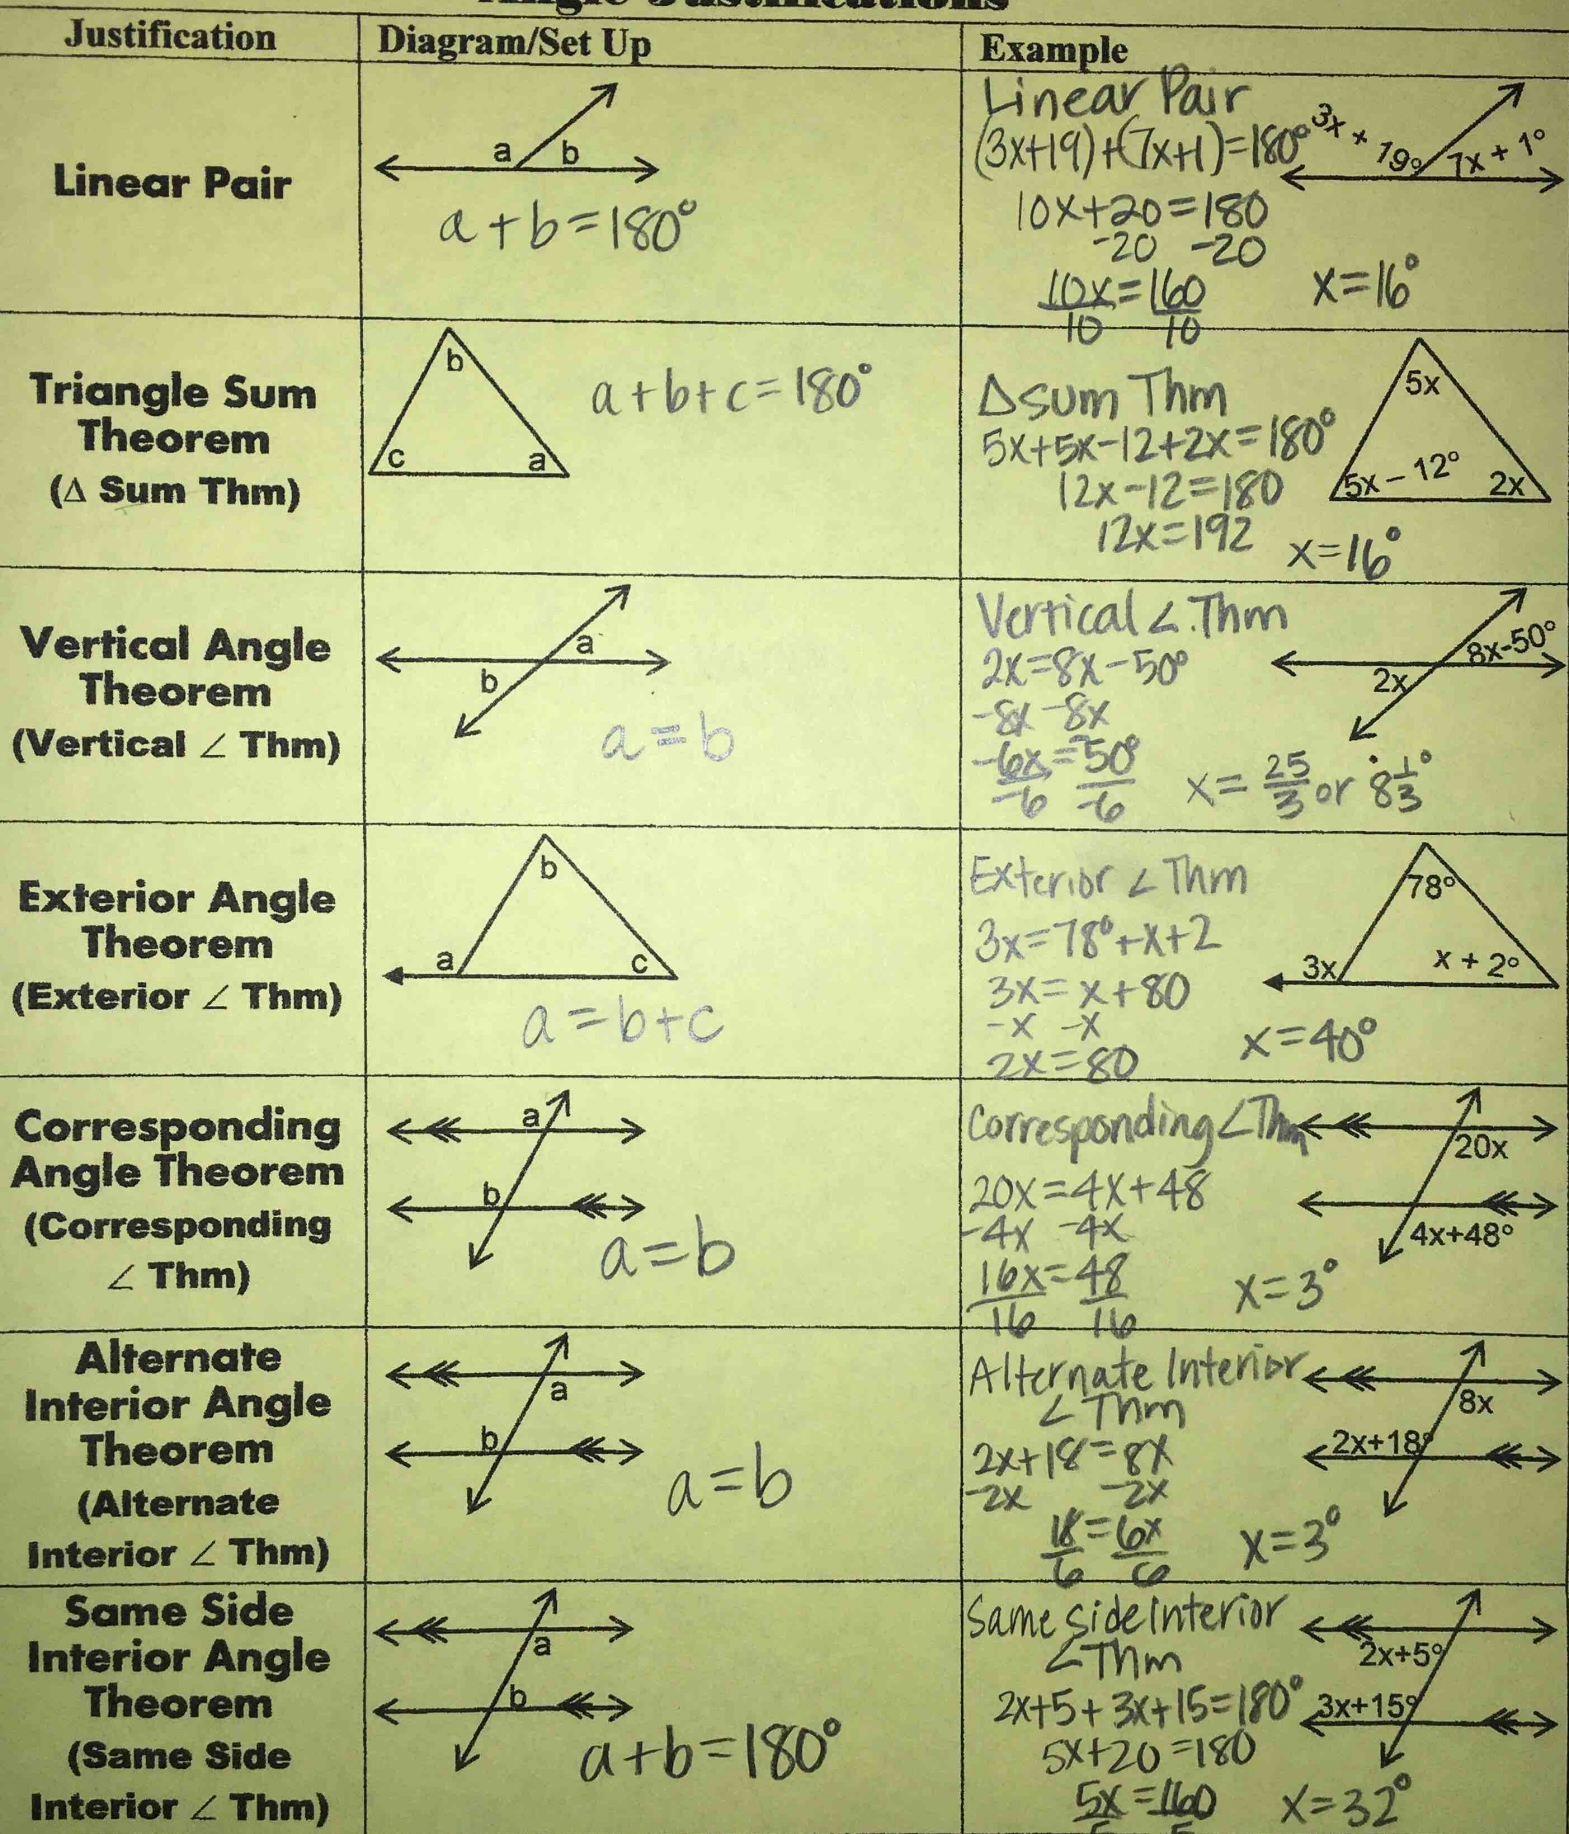 Angle Justifications
Justification
Diagram/Set Up
Example
Linear Pair
a
b
a+b=180°
Linear Pair
(3x+19)+(7x+1)=180°
10x+20=180
-20 -20
10x=160
10 10
x=16°
3x + 19°
7x + 1°
Triangle Sum
Theorem
(Δ Sum Thm)
b
c
a
a+b+c=180°
Δ sum Thm
5x+5x-12+2x=180°
12x-12=180
12x=192
x=16°
5x
5x - 12°
2x
Vertical Angle
Theorem
(Vertical ∠ Thm)
a
b
a=b
Vertical ∠ Thm
2x=8x-50°
-8x -8x
-6x=-50°
-6 -6
x= 25/3 or 8 1/3°
8x-50°
2x
Exterior Angle
Theorem
(Exterior ∠ Thm)
b
a
c
a=b+c
Exterior ∠ Thm
3x=78°+x+2
3x=x+80
-x -x
2x=80
x=40°
78°
3x
x + 2°
Corresponding
Angle Theorem
(Corresponding
∠ Thm)
a
b
a=b
Corresponding ∠Thm
20x=4x+48
-4x -4x
16x=48
16 16
x=3°
20x
4x+48°
Alternate
Interior Angle
Theorem
(Alternate
Interior ∠ Thm)
a
b
a=b
Alternate Interior
∠ Thm
2x+18=8x
-2x -2x
18=6x
6 6
x=3°
8x
2x+18°
Same Side
Interior Angle
Theorem
(Same Side
Interior ∠ Thm)
a
b
a+b=180°
Same side Interior
∠Thm
2x+5+3x+15=180°
5x+20=180
5x=160
5 5
x=32°
2x+5°
3x+15°